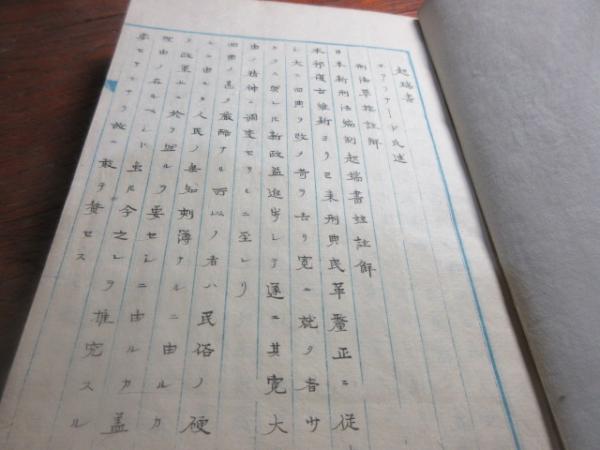 起端書
ボアソナード氏述
刑法草按註解
日本新刑法編制起端書註註解
本邦復古維新ヨリ已来刑典民革釐正ニ従
ヒ大ニ旧典ヲ改メ苛ヲ去リ寛ニ就ク者サ
クニ至レハ新政益進歩シテ遂ニ其寛大
由ノ精神ニ調変セシニ至レリ
旧典ノ甚タ厳酷ナル所以ノ者ハ民俗ノ硬
ルニ由ルカ人民ノ無知刻薄ナルニ由ルカ
ノ政軍ニ於テ無ルヲ要セシニ由ルカ蓋
理由ノ在ルヘシト虽ルモ今之レヲ推究スル
要セサルナリ故ニ敢テ贅セス